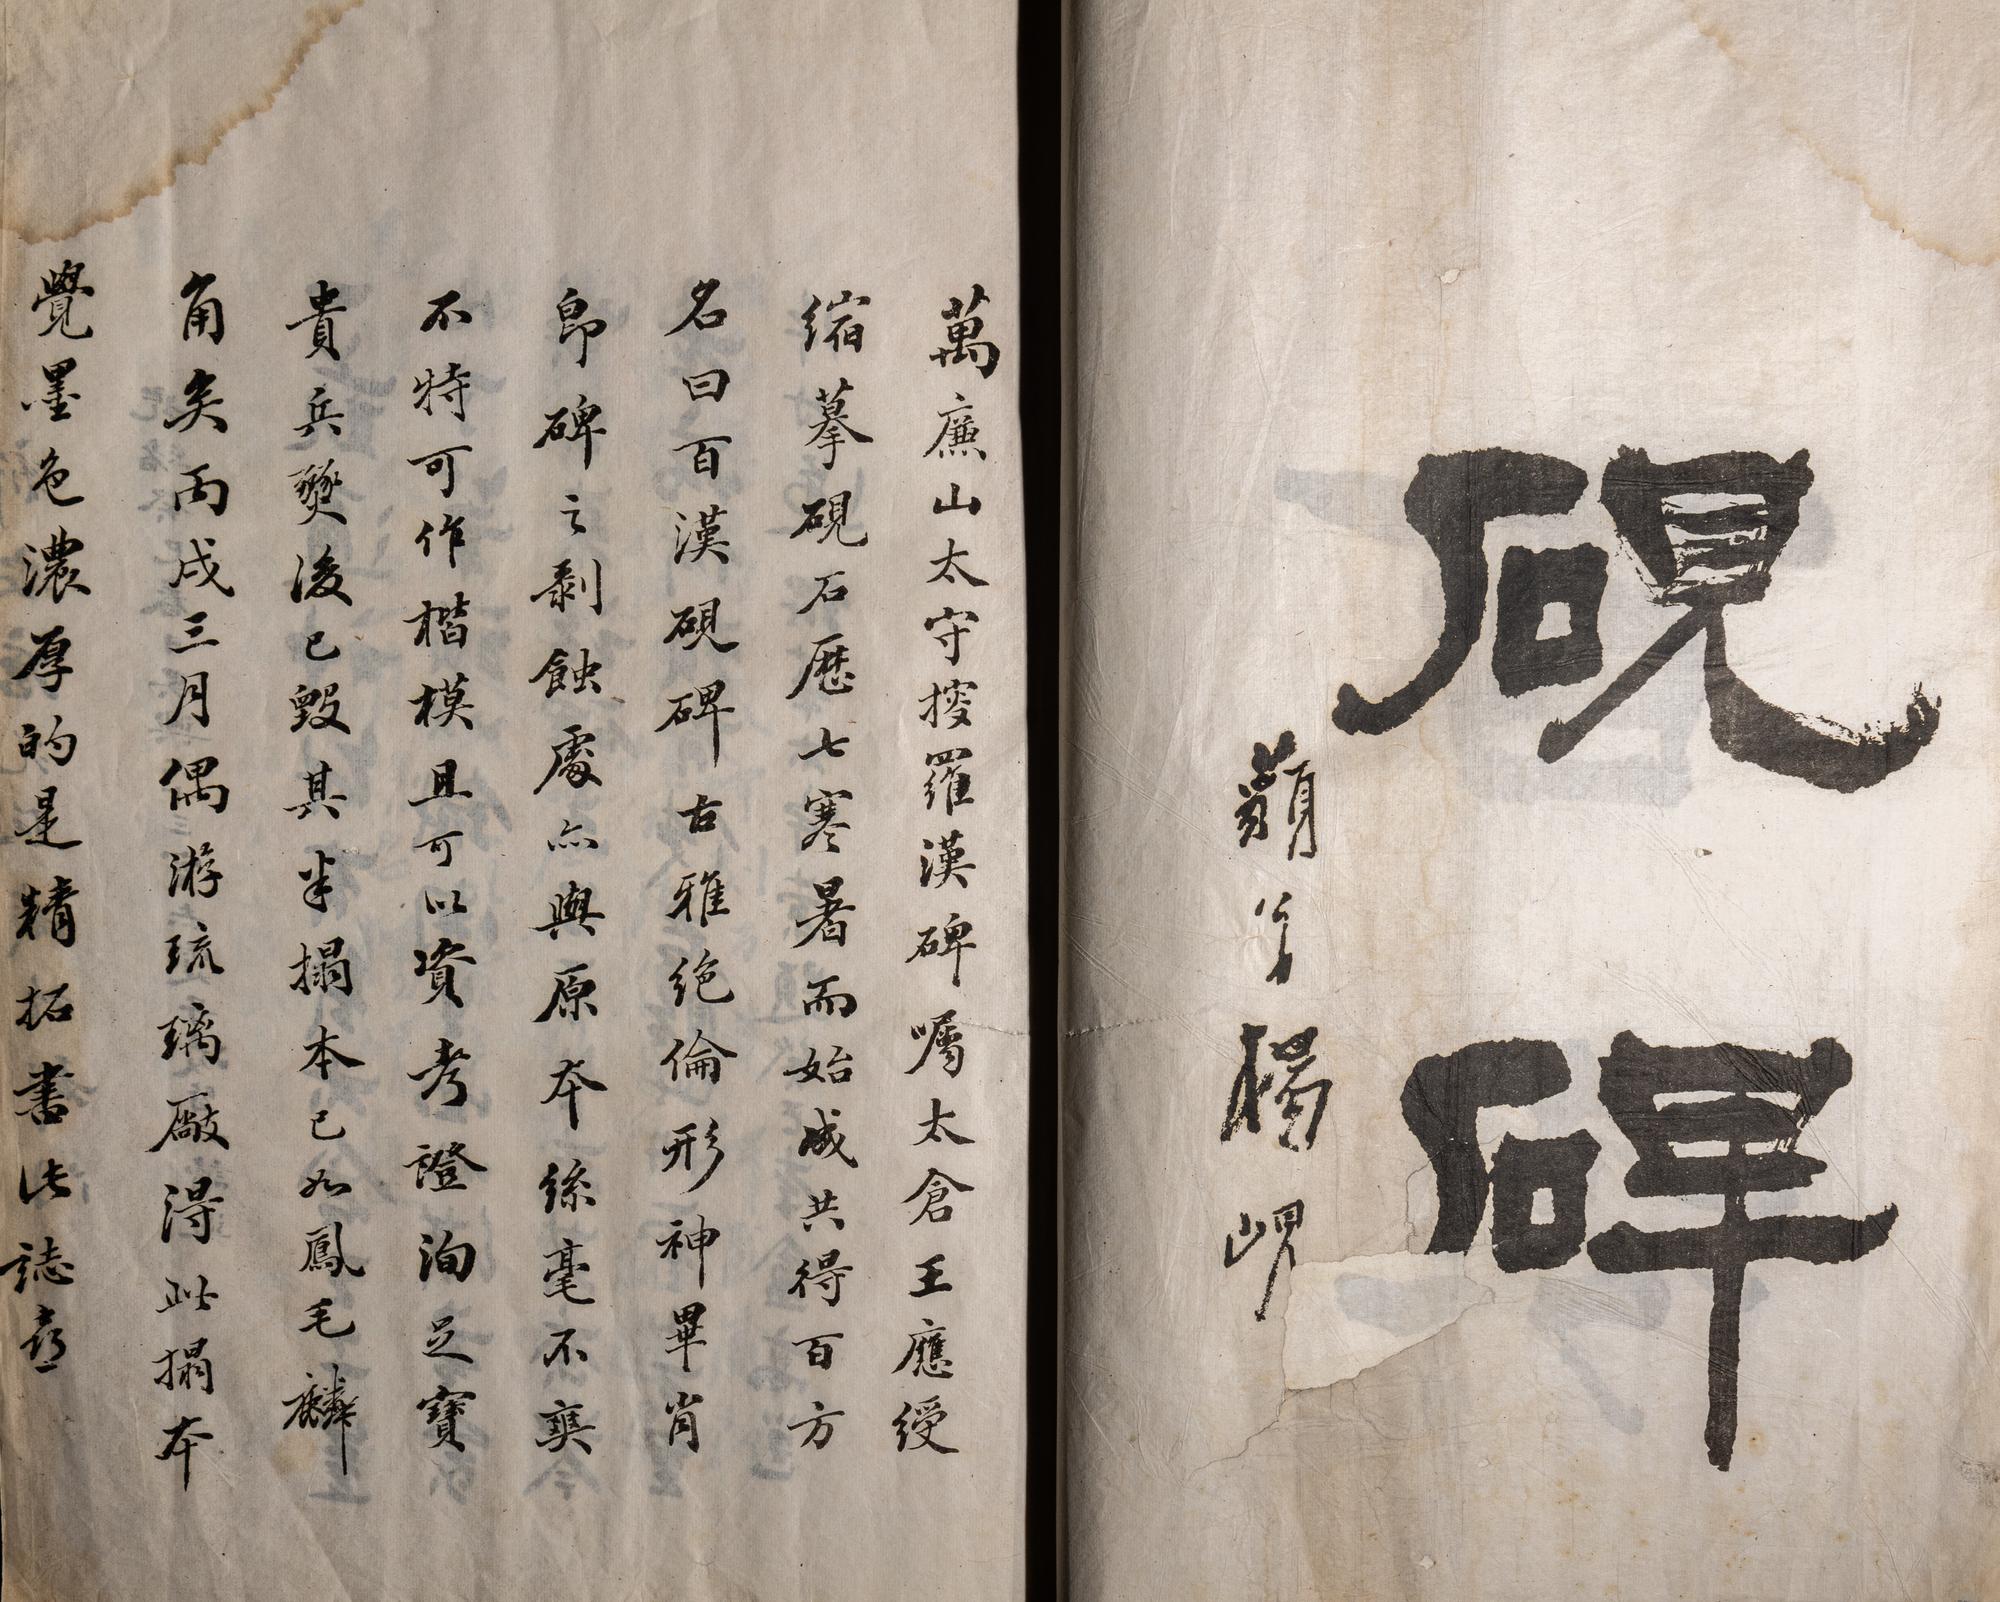 硯碑
蘋翁楊峴
萬廉山太守搜羅漢碑囑太倉王應綬
缩摹硯石歷七寒暑而始成共得百方
名曰百漢硯碑古雅絶倫形神畢肖
即碑之剥蝕處亦與原本絲毫不爽
不特可作楷模且可以資考證洵足寶
貴兵燹後已毀其半搨本已如鳳毛麟
角矣丙戌三月偶游琉璃廠得此搨本
覺墨色濃厚的是精拓書此誌喜